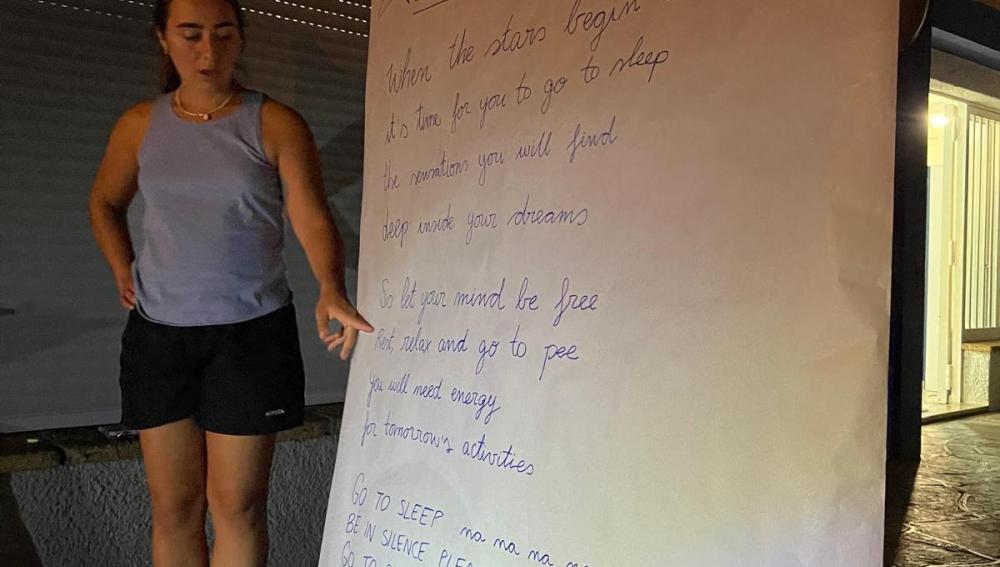 When the stars begin
it's time for you to go to sleep
the sensations you will find
deep inside your dreams
So let your mind be free
Rest, relax and go to pee
you will need energy
for tomorrow's activities
GO TO SLEEP na na na na
BE IN SILENCE
GO TO